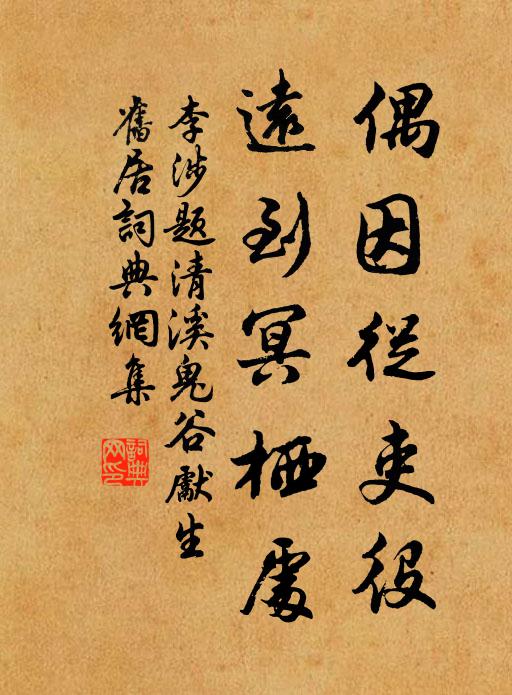 偶因從吏役
遠到冥栖處
李涉题清溪鬼谷獻生
舊居詞典網集
詞典
网印